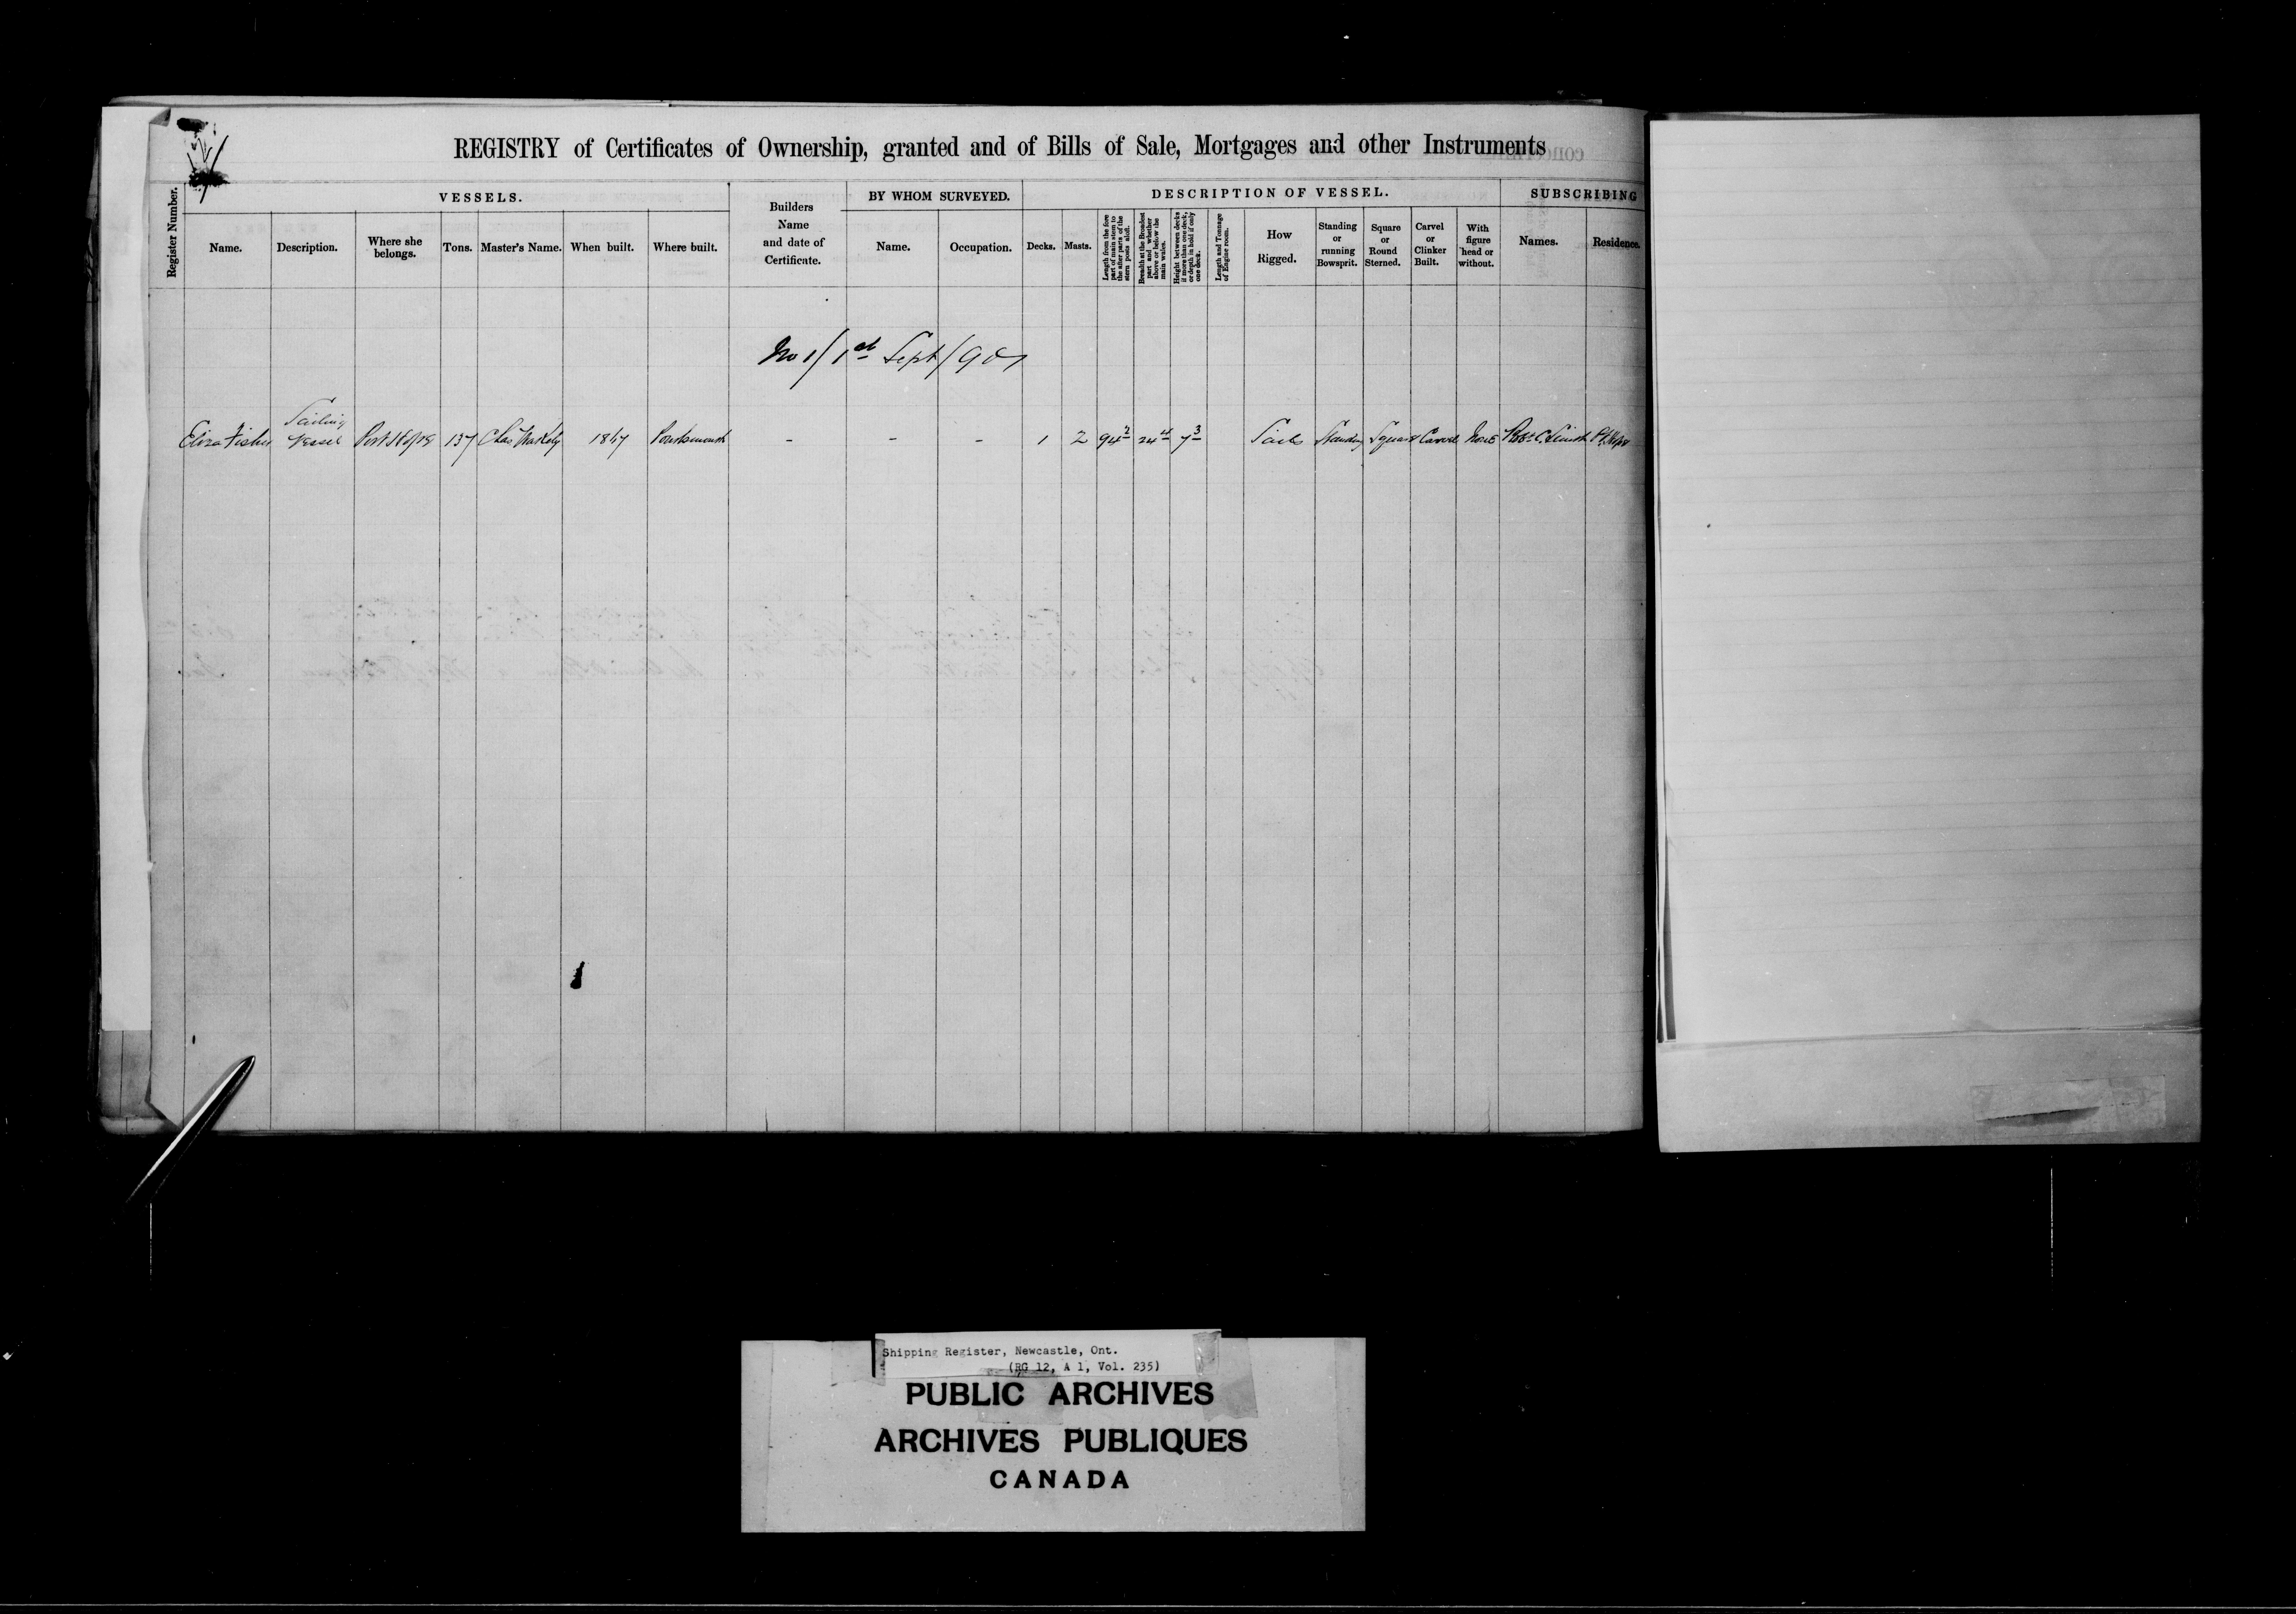 REGISTRY of Certificates of Ownership, granted and of Bills of Sale, Mortgages and other Instruments
Register Number.
VESSELS.
Name.
Description.
Where she belongs.
Tons.
Master's Name.
When built.
Where built.
Builders Name and date of Certificate.
BY WHOM SURVEYED.
Name.
Occupation.
DESCRIPTION OF VESSEL.
Decks.
Masts.
Length from the fore part of main stem to the after parts of the stern posts aloft.
Breadth at the Broadest part and whether above or below the main wales.
Height between decks if more than one deck, or depth in hold if only one deck.
Length and Tonnage of Engine room.
How Rigged.
Standing or running Bowsprit.
Square or Round Sterned.
Carvel or Clinker Built.
With figure head or without.
SUBSCRIBING
Names.
Residence.
No 1/1st Sept/901
Eliza Fisher Sailing Vessel Port Hope 137 Chas 1867 Portsmouth - - - 1 2 94 2 24 4 7 3 Sails Standing Square Carvel None Robt C. Smith Pt Hope
Shipping Register, Newcastle, Ont.
(RG 12, A 1, Vol. 235)
PUBLIC ARCHIVES
ARCHIVES PUBLIQUES
CANADA